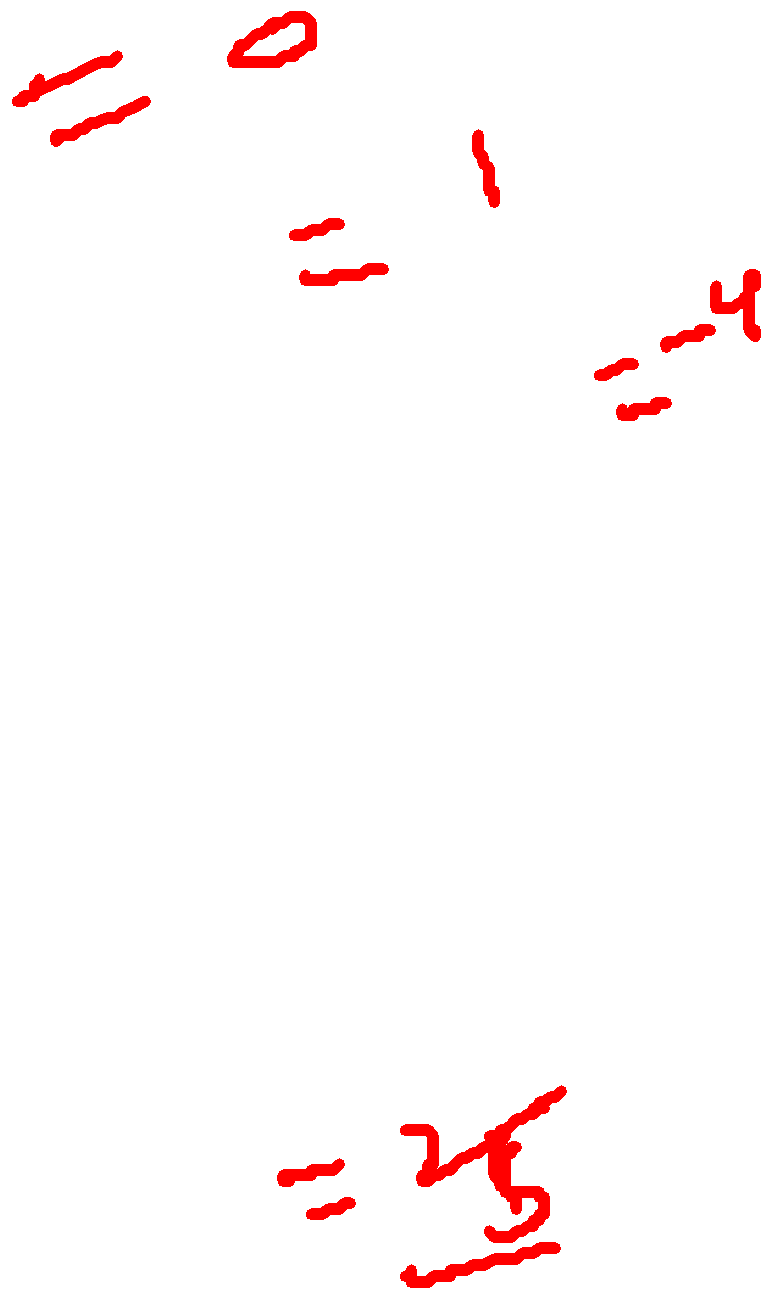 = 0
= 1
= -4
= 25